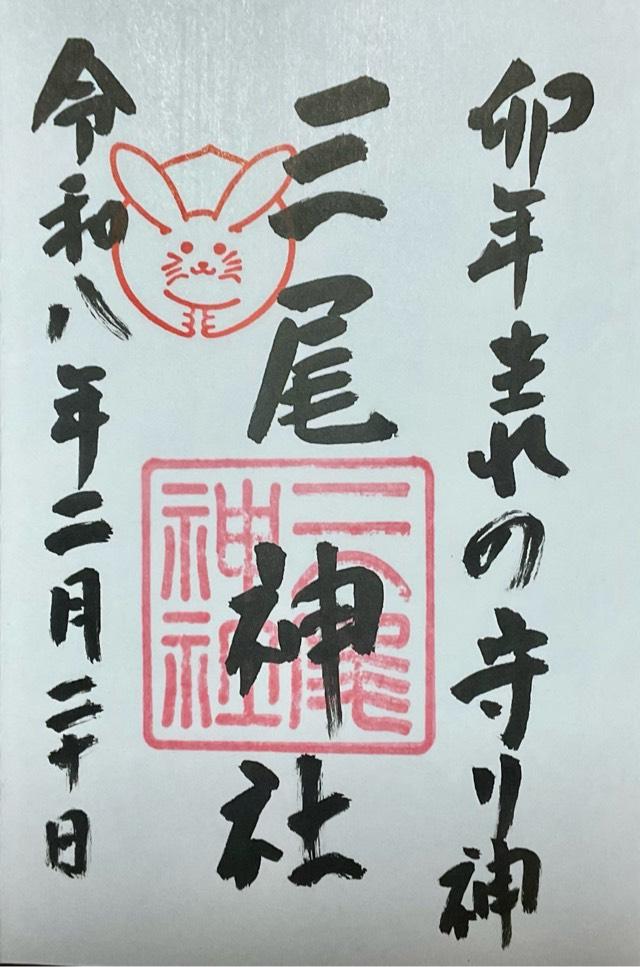 卯年生れの守り神
三尾神社
三尾神社
令和八年二月二十日